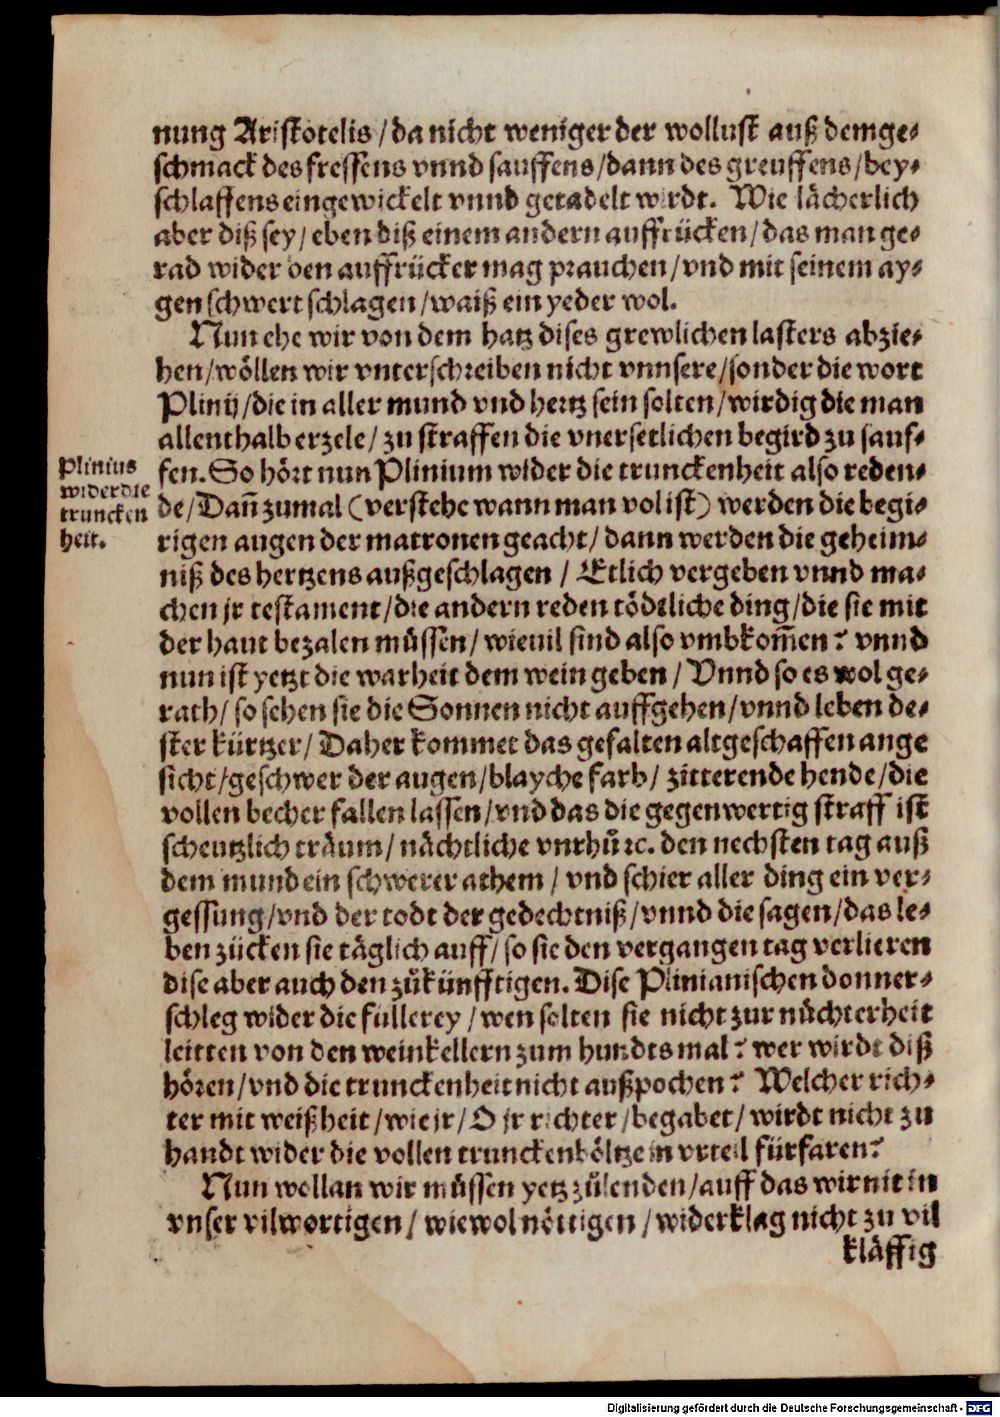 nung Aristotelis / da nicht weniger der wollust auß dem ge-
schmack des fressens vnnd sauffens / dann des greuffens / bey-
schlaffens eingewickelt vnnd getadelt wirdt. Wie lächerlich
aber diß sey / eben diß einem andern auffrücken / das man ge-
rad wider den auffrücker mag prauchen / vnd mit seinem ay-
gen schwert schlagen / waiß ein yeder wol.
Nun ehe wir von dem hatz dises grewlichen lasters abzie-
hen / wöllen wir vnterschreiben nicht vnnsere / sonder die wort
Plinij / die in aller mund vnd hertz sein solten / wirdig die man
allenthalb erzele / zu straffen die vnersetlichen begird zu sauf-
Plinius
wider die
truncken
heit.
fen. So hört nun Plinium wider die trunckenheit also reden-
de / Dañ zumal (verstehe wann man vol ist) werden die begi-
rigen augen der matronen geacht / dann werden die geheim-
niß des hertzens außgeschlagen / Etlich vergeben vnnd ma-
chen jr testament / die andern reden tödtliche ding / die sie mit
der haut bezalen müssen / wieuil sind also vmbkom̃en? vnnd
nun ist yetzt die warheit dem wein geben / Vnnd so es wol ge-
rath / so sehen sie die Sonnen nicht auffgehen / vnnd leben de-
ster kürtzer / Daher kommet das gefalten altgeschaffen ange
sicht / geschwer der augen / blayche farb / zitterende hende / die
vollen becher fallen lassen / vnd das die gegenwertig straff ist
scheutzlich träum / nächtliche vnrhů ꝛc. den nechsten tag auß
dem mund ein schwerer athem / vnd schier aller ding ein ver-
gessung / vnd der todt der gedechtniß / vnnd die sagen / das le-
ben zücken sie täglich auff / so sie den vergangen tag verlieren
dise aber auch den zůkünfftigen. Dise Plinianischen donner-
schleg wider die füllerey / wen solten sie nicht zur nüchterheit
leitten von den weinkellern zum hundtsmal? wer wirdt diß
hören / vnd die trunckenheit nicht außpochen? Welcher rich-
ter mit weißheit / wie jr / O jr richter / begabet / wirdt nicht zu
handt wider die vollen trunckenböltz ein vrteil fürfaren?
Nun wollan wir müssen yetz zůlenden / auff das wir nit in
vnser vilwortigen / wiewol nöttigen / widerklag nicht zu vil
kläffig
Digitalisierung gefördert durch die Deutsche Forschungsgemeinschaft - DFG